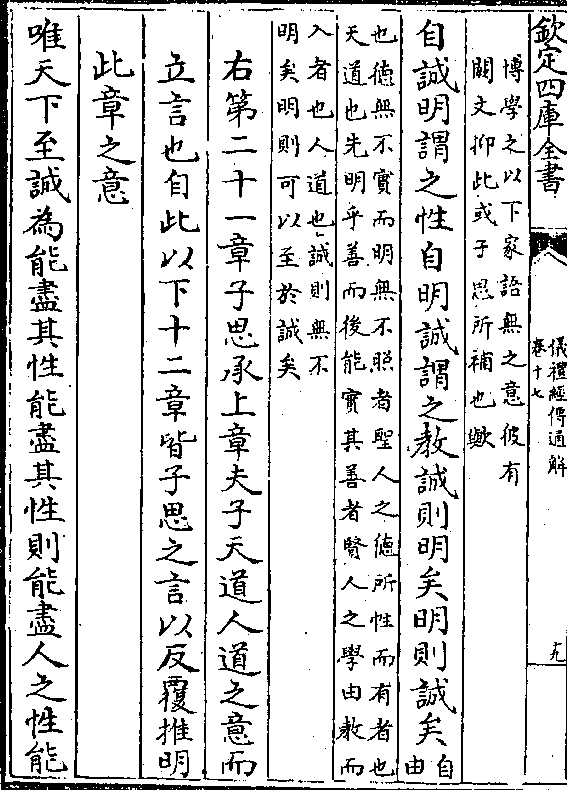 欽定四庫全書
儀禮經傳通解
卷十七
十九
博學之以下家語無之意彼有
闕文抑此或子思所補也歟
自誠明謂之性自明誠謂之教誠則明矣明則誠矣
自由
也德無不實而明無不照者聖人之德所性而有者也
天道也先明乎善而後能實其善者賢人之學由教而
入者也人道也誠則無不
明矣明則可以至於誠矣
右第二十一章子思承上章夫子天道人道之意而
立言也自此以下十二章皆子思之言以反覆推明
此章之意
唯天下至誠為能盡其性能盡其性則能盡人之性能